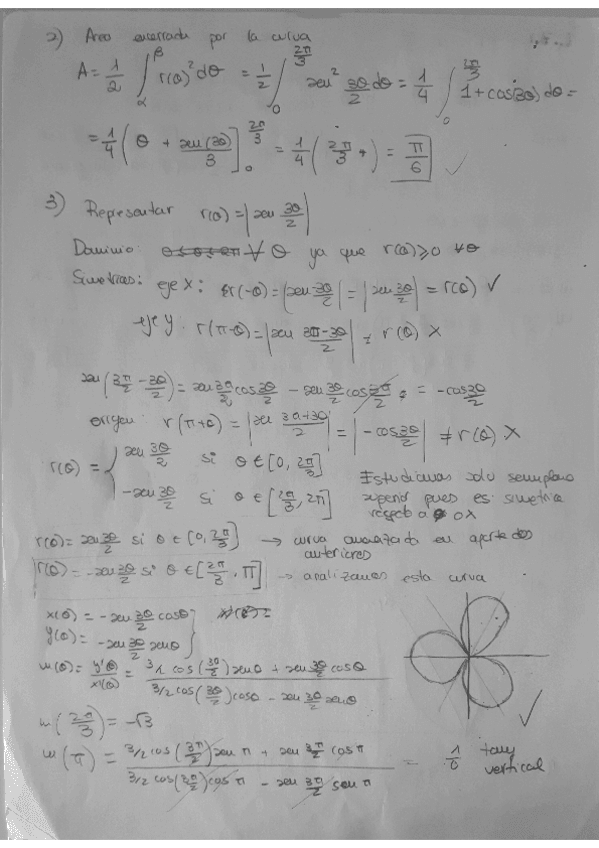 2) Area encerrada por la curva
A = 1/2 ∫_α^β r(θ)² dθ = 1/2 ∫_0^{2π/3} sen² 3θ/2 dθ = 1/4 ∫_0^{2π/3} 1+cos(3θ) dθ =
= 1/4 (θ + sen(3θ)/3]_0^{2π/3} = 1/4 (2π/3 + ) = π/6 ✓
3) Representar r(θ) = |sen 3θ/2|
Dominio: ∀ θ ya que r(θ) ≥ 0 ∀θ
Simetrias: eje X: r(-θ) = |sen -3θ/2| = |sen 3θ/2| = r(θ) ✓
eje y: r(π-θ) = |sen 3π-3θ/2| ≠ r(θ) X
sen(3π/2 - 3θ/2) = sen 3π/2 cos 3θ/2 - sen 3θ/2 cos 3π/2 = -cos 3θ/2
origen: r(π+θ) = |sen 3π+3θ/2| = |-cos 3θ/2| ≠ r(θ) X
r(θ) = { sen 3θ/2 si θ ∈ [0, 2π/3]
-sen 3θ/2 si θ ∈ [2π/3, 2π]
Estudiamos solo semiplano
superior pues es simetrica
respecto a OX
r(θ) = sen 3θ/2 si θ ∈ [0, 2π/3] → curva analizada en apartados
anteriores
r(θ) = -sen 3θ/2 si θ ∈ [2π/3, π] → analizamos esta curva
x(θ) = -sen 3θ/2 cosθ
y(θ) = -sen 3θ/2 senθ
m(θ) = y'(θ)/x'(θ) = 3/2 cos(3θ/2) senθ + sen 3θ/2 cosθ / 3/2 cos(3θ/2) cosθ - sen 3θ/2 senθ
m(2π/3) = -√3
m(π) = 3/2 cos(3π/2) sen π + sen 3π/2 cos π / 3/2 cos(3π/2) cos π - sen 3π/2 sen π = 1/0 tang
vertical